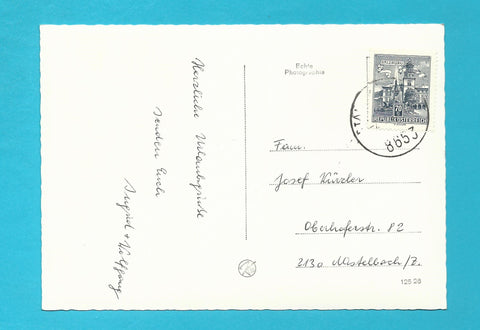 Herzliche Urlaubsgrüße
senden Euch
Ingrid + Wolfgang
Echte
Photographie
REPUBLIK ÖSTERREICH
8653
Fam.
Josef Künzler
Oberhoferstr. 82
2130 Mistelbach/Z.
125 26